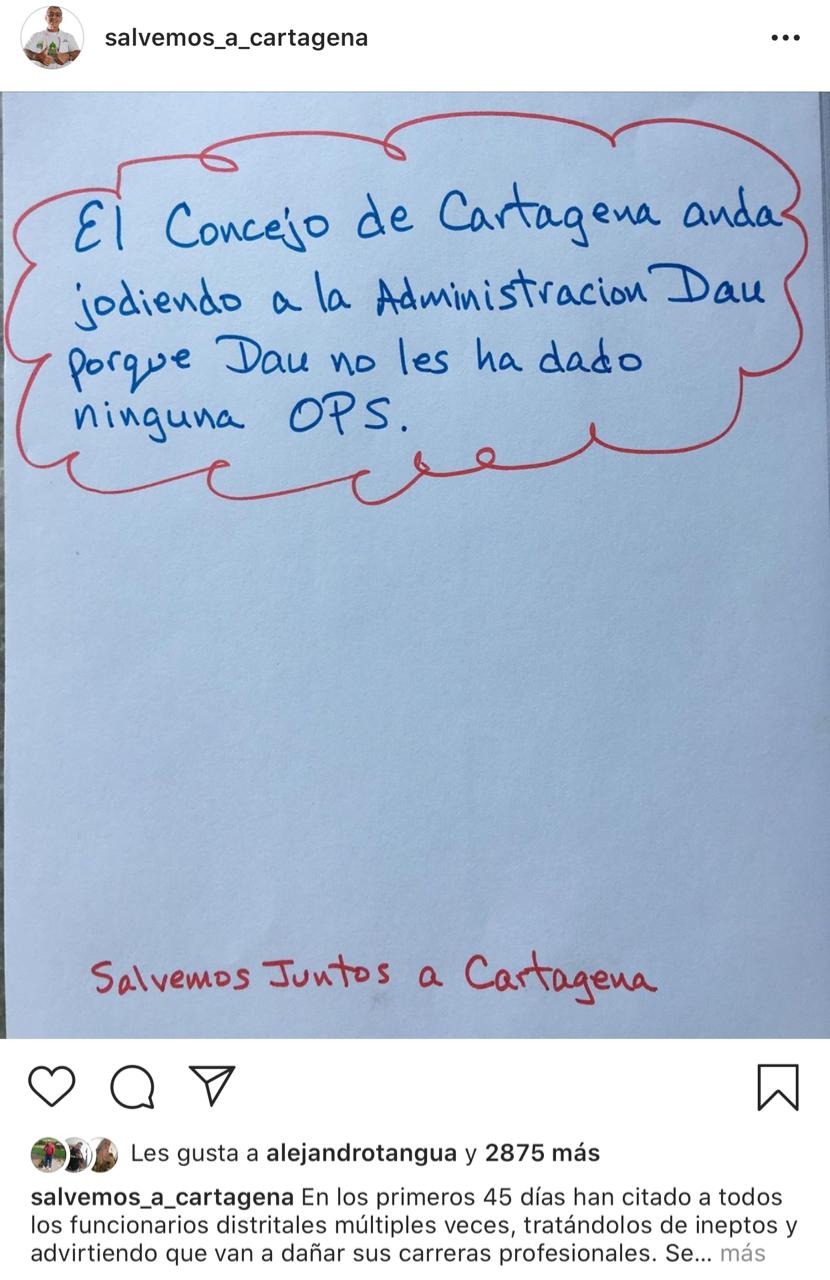 salvemos_a_cartagena
El Concejo de Cartagena anda
jodiendo a la Administracion Dau
porque Dau no les ha dado
ninguna OPS.
Salvemos Juntos a Cartagena
Les gusta a alejandrotangua y 2875 más
salvemos_a_cartagena En los primeros 45 días han citado a todos
los funcionarios distritales múltiples veces, tratándolos de ineptos y
advirtiendo que van a dañar sus carreras profesionales. Se... más